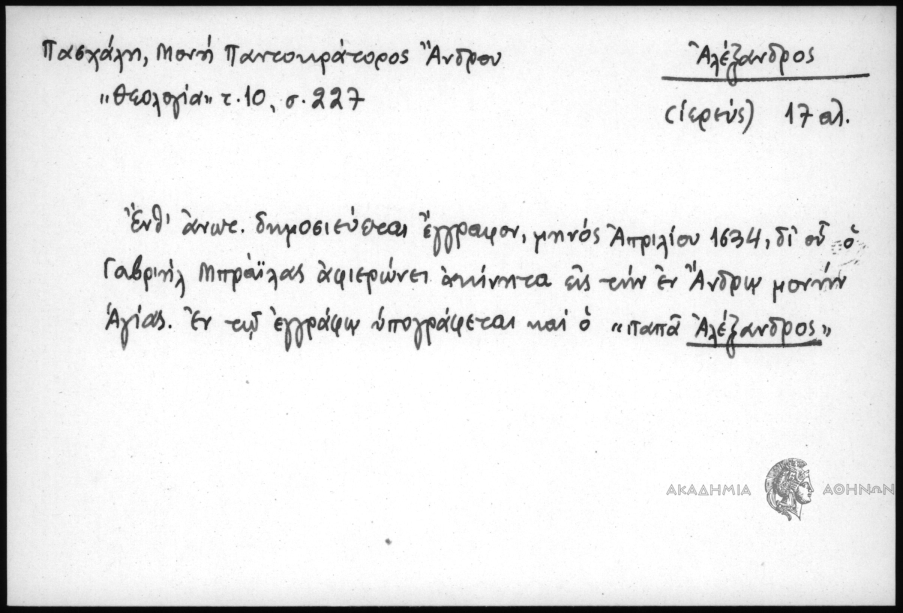 Πασχάλη, Μονή Παντοκράτορος Ἄνδρου
"Θεολογία" τ. 10, σ. 227
Ἀλέξανδρος
(ἱερεύς) 17 αἰ.
Ἔνθ' ἀνωτ. δημοσιεύεται ἔγγραφον, μηνός Ἀπριλίου 1634, δι' οὗ ὁ
Γαβριήλ Μπράϊλας ἀφιερώνει ἀκίνητα εἰς τήν ἐν Ἄνδρῳ μονήν
Ἁγίας. Ἐν τῷ ἐγγράφῳ ὑπογράφεται καί ὁ "παπᾶ Ἀλέξανδρος"
ΑΚΑΔΗΜΙΑ ΑΘΗΝΩΝ